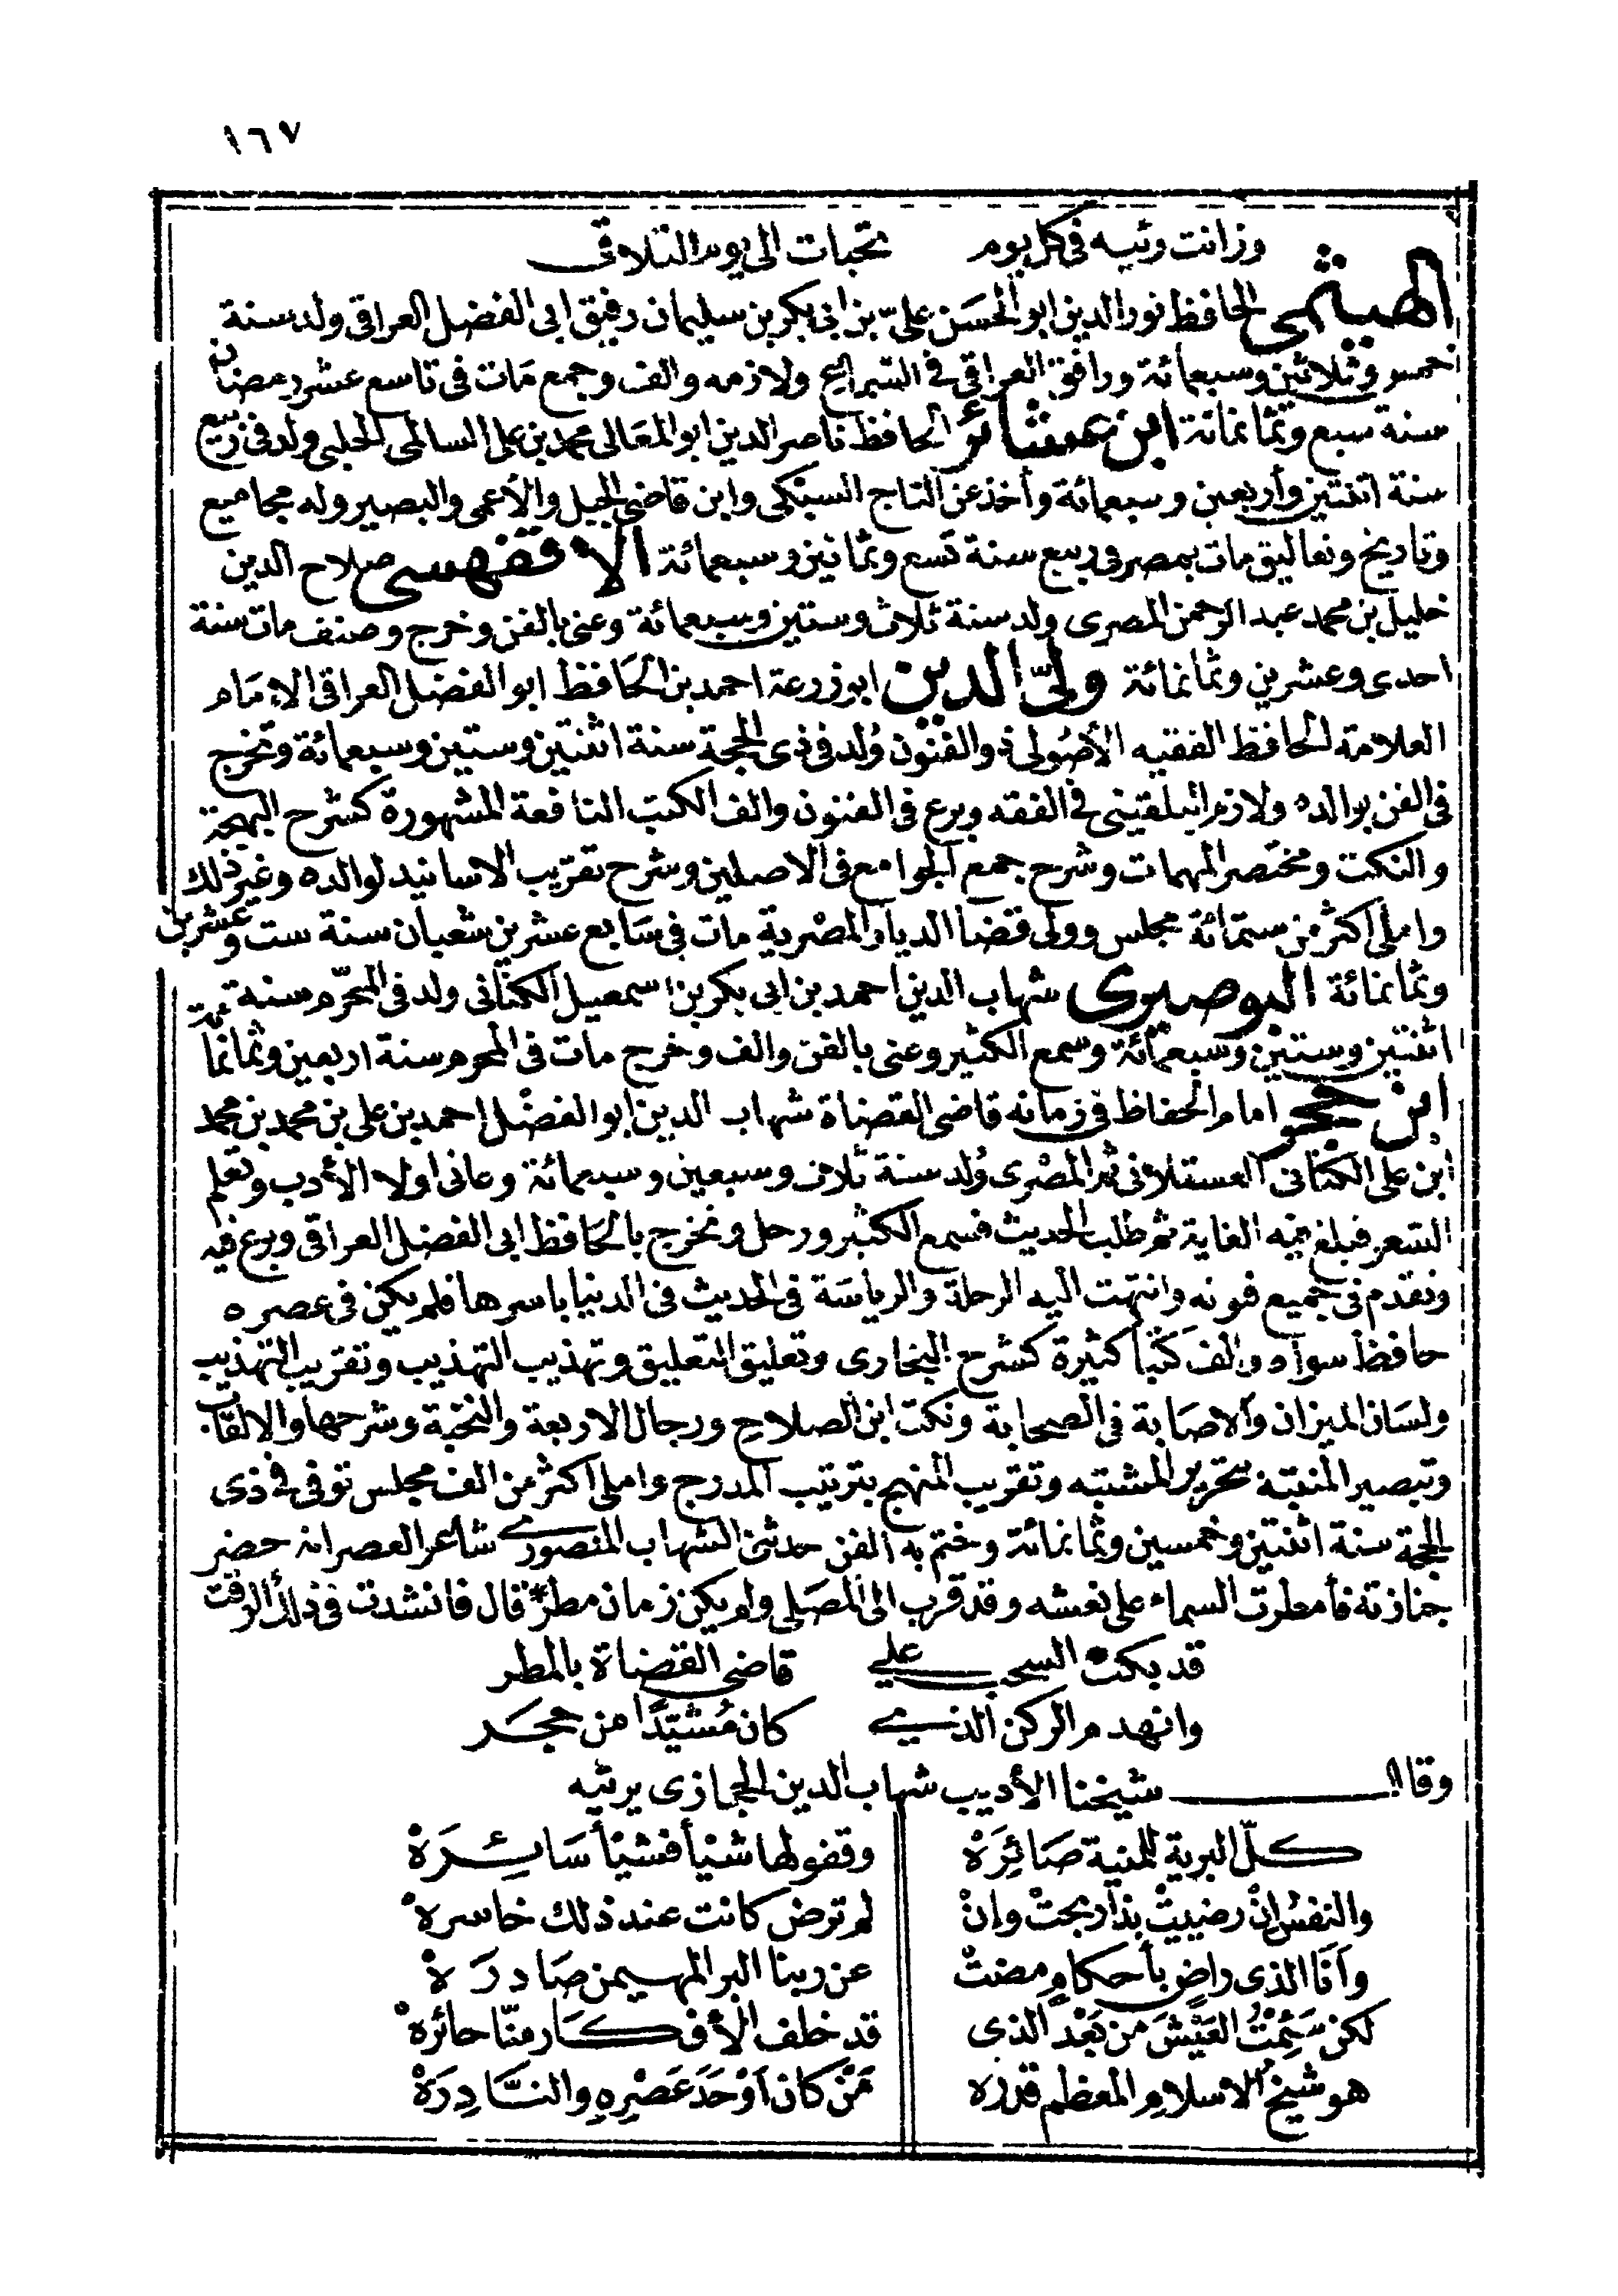 ١٦٧
وزانت وتيبه في كل يوم تحيات الى يوم التلاقى
الهيثمى الحافظ نور الدين ابو الحسن على بن ابى بكر بن سليمان رفيق ابى الفضل العراقى ولد سنة
خمس وثلاثين وسبعمائة ورافق العراقى فى السماع ولازمه والف وجمع مَات فى تاسع عشر رمضان
سنة سبع وثمانمائة ابن عشائر الحافظ ناصر الدين ابو المعَالى محمد بن على السالمى الحلبى ولد فى ربيع
سنة اثنتين وأربعين وسبعمائة وأخذ عن التاج السبكى وابن قاضى الجبل والأعمى والبصير وله مجاميع
وتاريخ وتعاليق مات بمصر فى ربيع سنة تسع وثمانين وسبعمائة الاقفهسى صلاح الدين
خليل بن محمد عبد الرحمن المصرى ولد سنة ثلاث وستين وسبعمائة وعنى بالفن وخرج وصنف مات سنة
احدى وعشرين وثمانمائة ولىّ الدين ابو زرعة احمد بن الحَافظ ابو الفضل العراقى الامَام
العلامة الحافظ الفقيه الأصُولى ذو الفنون وُلد فى ذى الحجة سنة اثنتين وستين وسبعمائة وتخرج
فى الفن بوالده ولازم البلقينى فى الفقه وبرع فى الفنون والف الكتب النافعة المشهورة كشرح البهجة
والنكت ومختصر المهمات وشرح جمع الجوامع فى الاصلين وشرح تقريب الاسانيد لوالده وغير ذلك
واملى اكثر من ستمائة مجلس وولى قضا الديار المصرية مات فى سَابع عشرين شعبان سنة ست وعشرين
وثمانمائة البوصيرى شهاب الدين احمد بن ابى بكر بن اسمعيل الكنانى ولد فى المحرّم سنة
اثنتين وستين وسبعمائة وسمع الكثير وعنى بالفن والف وخرج مات فى المحرم سنة اربعين وثمانمائة
ابن حجر امام الحفاظ فى زمانه قاضى القضاة شهاب الدين ابو الفضل احمد بن على بن محمد بن محمد
ابن على الكنانى العسقلانى ثم المصْرى وُلد سنة ثلاث وسبعين وسبعمائة وعانى اولا الأدب وتعلم
الشعر فبلغ فيه الغاية ثم طلب الحديث فسمع الكثير ورحل وتخرج بالحَافظ ابى الفضل العراقى وبرع فيه
وتقدم فى جميع فنونه وانتهت اليه الرحلة والرياسَة فى الحديث فى الدنيا باسرها فلم يكن فى عصره
حافظ سواه والف كتبا كثيرة كشرح البخارى وتعليق التعليق وتهذيب التهذيب وتقريب التهذيب
ولسَان الميزان والاصَابة فى الصحابة ونكت ابن الصلاح ورجال الاربعة والنخبة وشرحها والالقاب
وتبصير المنتبه بتحرير المشتبه وتقريب المنهج بترتيب المدرج واملى اكثر من الف مجلس توفى فى ذى
الحجة سنة اثنتين وخمسين وثمانمائة وختم به الفن حدثنى الشهاب المنصورى شاعر العصر انه حضر
جنازته فأمطرت السماء على نعشه وقد قرب الى المصَلى ولم يكن زمان مطر قال فانشدت فى ذلك الوقت
قد بكت السحب على قاضى القضاة بالمطر
وانهدم الركن الذى كان مُشيّدًا من حجَر
وقال شيخنا الأديب شهاب الدين الحجازى يرثيه
كلّ البرية للمنية صَائِرَهْ وقفولها شيْأ فشيْأ سَائِرَهْ
والنفسُ إنْ رضيتْ بذا ربحتْ وانْ لم ترض كانت عند ذلك خاسرهْ
وأنَا الذى راضٍ بأحكامٍ مضتْ عن ربنا البر المهيمن صَادرَهْ
لكن سَئِمْتُ العَيْشَ من بَعْد الذى قد خلف الأفكَار منّا حائرهْ
هو شيخُ الاسلامِ المعظم قدره مَنْ كان أوْحَدَ عَصْرِهِ والنَّادِرَهْ